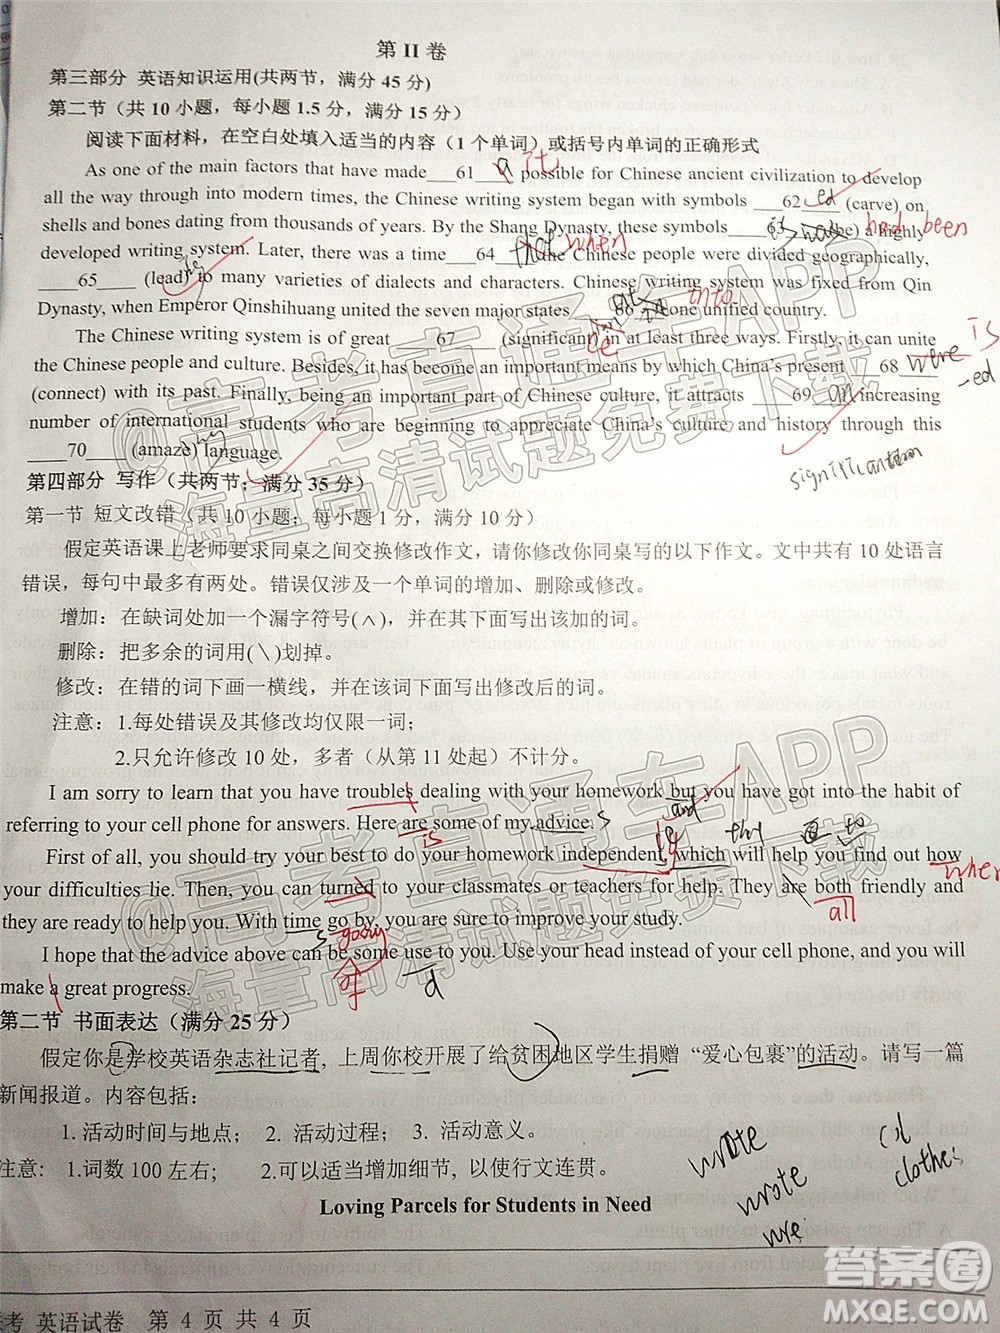 第 II 卷
第三部分 英语知识运用(共两节，满分 45 分)
第二节（共 10 小题，每小题 1.5 分，满分 15 分）
阅读下面材料，在空白处填入适当的内容（1 个单词）或括号内单词的正确形式
As one of the main factors that have made___61___ possible for Chinese ancient civilization to develop
a it
all the way through into modern times, the Chinese writing system began with symbols ___62___ (carve) on
ed
shells and bones dating from thousands of years. By the Shang Dynasty, these symbols ___63___ (be) a highly
had been
developed writing system. Later, there was a time___64___ the Chinese people were divided geographically,
that when
___65___ (lead) to many varieties of dialects and characters. Chinese writing system was fixed from Qin
Dynasty, when Emperor Qinshihuang united the seven major states ___66___ one unified country.
into
The Chinese writing system is of great ___67___ (significant) in at least three ways. Firstly, it can unite
ce
the Chinese people and culture. Besides, it has become an important means by which China's present ___68___
were is
-ed
(connect) with its past. Finally, being an important part of Chinese culture, it attracts ___69___ increasing
an
number of international students who are beginning to appreciate China's culture and history through this
___70___ (amaze) language.
第四部分 写作（共两节；满分 35 分）
第一节 短文改错（共 10 小题；每小题 1 分，满分 10 分）
假定英语课上老师要求同桌之间交换修改作文，请你修改你同桌写的以下作文。文中共有 10 处语言
错误，每句中最多有两处。错误仅涉及一个单词的增加、删除或修改。
增加：在缺词处加一个漏字符号(∧)，并在其下面写出该加的词。
删除：把多余的词用(\)划掉。
修改：在错的词下画一横线，并在该词下面写出修改后的词。
注意：1.每处错误及其修改均仅限一词；
2.只允许修改 10 处，多者（从第 11 处起）不计分。
I am sorry to learn that you have troubles dealing with your homework but you have got into the habit of
and
referring to your cell phone for answers. Here are some of my advice.
is
First of all, you should try your best to do your homework independent, which will help you find out how
ly
to
your difficulties lie. Then, you can turned to your classmates or teachers for help. They are both friendly and
all
they are ready to help you. With time go by, you are sure to improve your study.
I hope that the advice above can be some use to you. Use your head instead of your cell phone, and you will
of
d
make a great progress.
第二节 书面表达（满分 25 分）
假定你是学校英语杂志社记者，上周你校开展了给贫困地区学生捐赠 “爱心包裹”的活动。请写一篇
新闻报道。内容包括：
1. 活动时间与地点； 2. 活动过程； 3. 活动意义。
注意： 1.词数 100 左右； 2.可以适当增加细节，以使行文连贯。
wrote
clothes
wrote
Loving Parcels for Students in Need
英语试卷 第 4 页 共 4 页
@高考直通车APP
海量高清试题免费下载
@高考直通车APP
海量高清试题免费下载
答案圈
MXQE.COM